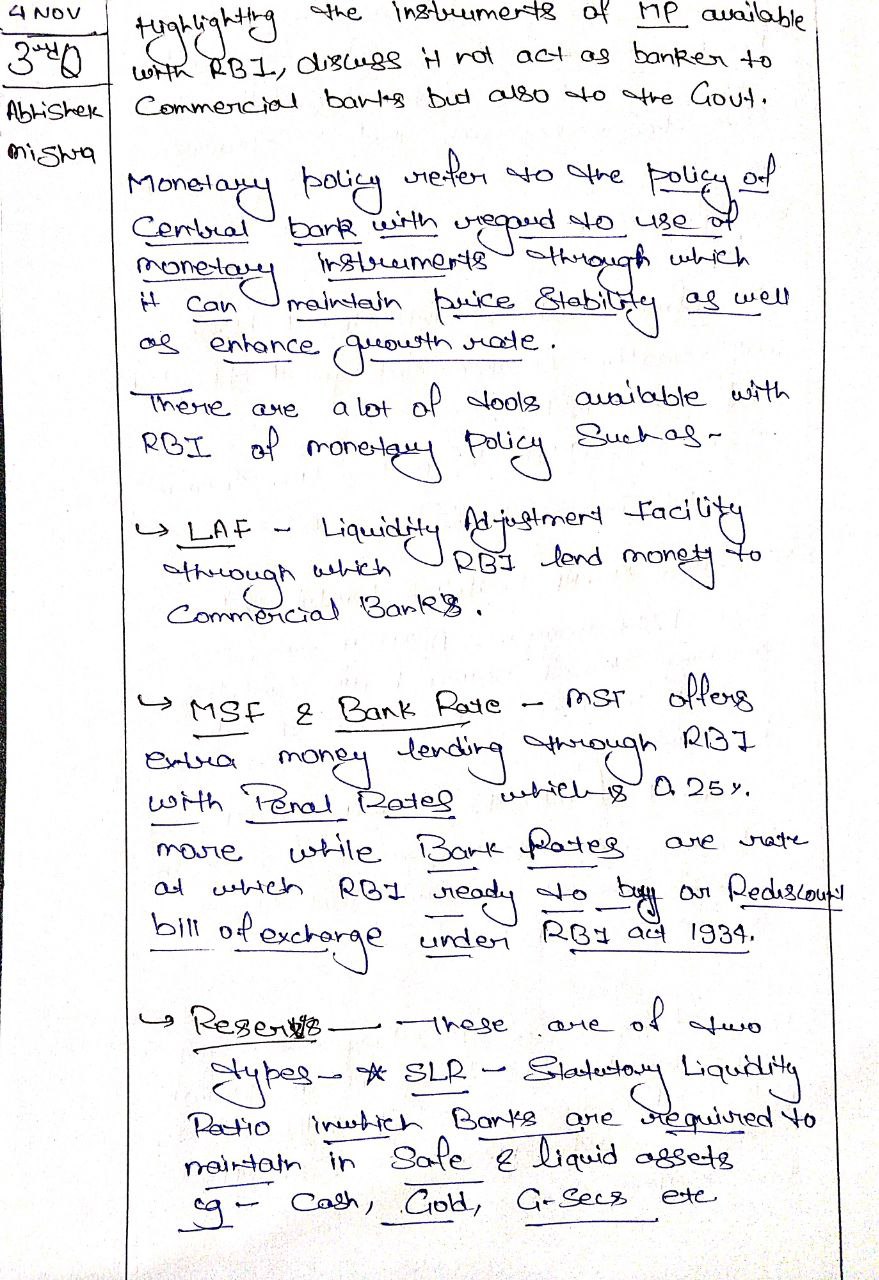 4 NOV
3rd Q
Abhishek
Mishra
Highlighting the instruments of MP available
with RBI, discuss it not act as banker to
Commercial banks but also to the Govt.
Monetary policy refer to the policy of
Central bank with regard to use of
monetary instruments through which
it can maintain price stability as well
as enhance growth rate.
There are a lot of tools available with
RBI of monetary policy Such as -
↳ LAF - Liquidity Adjustment Facility
through which RBI lend money to
Commercial Banks.
↳ MSF & Bank Rate - MSF offers
extra money lending through RBI
with Penal Rates which is 0.25%.
more while Bank Rates are rate
at which RBI ready to buy or Rediscount
bill of exchange under RBI act 1934.
↳ Reserves — These are of two
types - * SLR - Statutory Liquidity
Ratio in which Banks are required to
maintain in Safe & liquid assets
eg - Cash, Gold, G-Secs etc